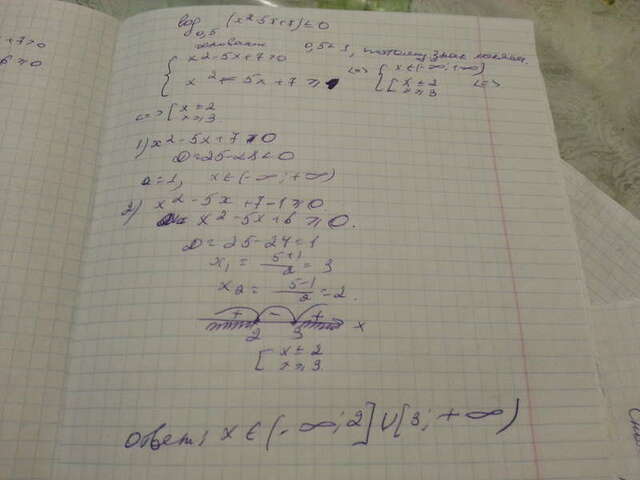 +7>0
6≥0
log₀,₅ (x²-5x+7)≤0
0,5<1, поэтому знак меняем.
{ x²-5x+7>0
x²-5x+7≥1 <=> { x∈(-∞;+∞) [ x≤2 x≥3 <=>
<=> [ x≤2 x≥3
1) x²-5x+7>0
D=25-28<0
a=1, x∈(-∞;+∞)
2) x²-5x+7-1≥0
x²-5x+6≥0.
D=25-24=1
x₁ = (5+1)/2 = 3
x₂ = (5-1)/2 = 2.
+ - +
2 3 x
[ x≤2
x≥3.
Ответ: x∈(-∞;2]∪[3;+∞)